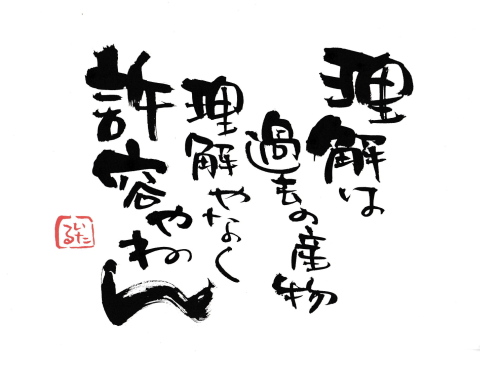 理解は
過去の産物
理解やなく
許容やねん
いたる